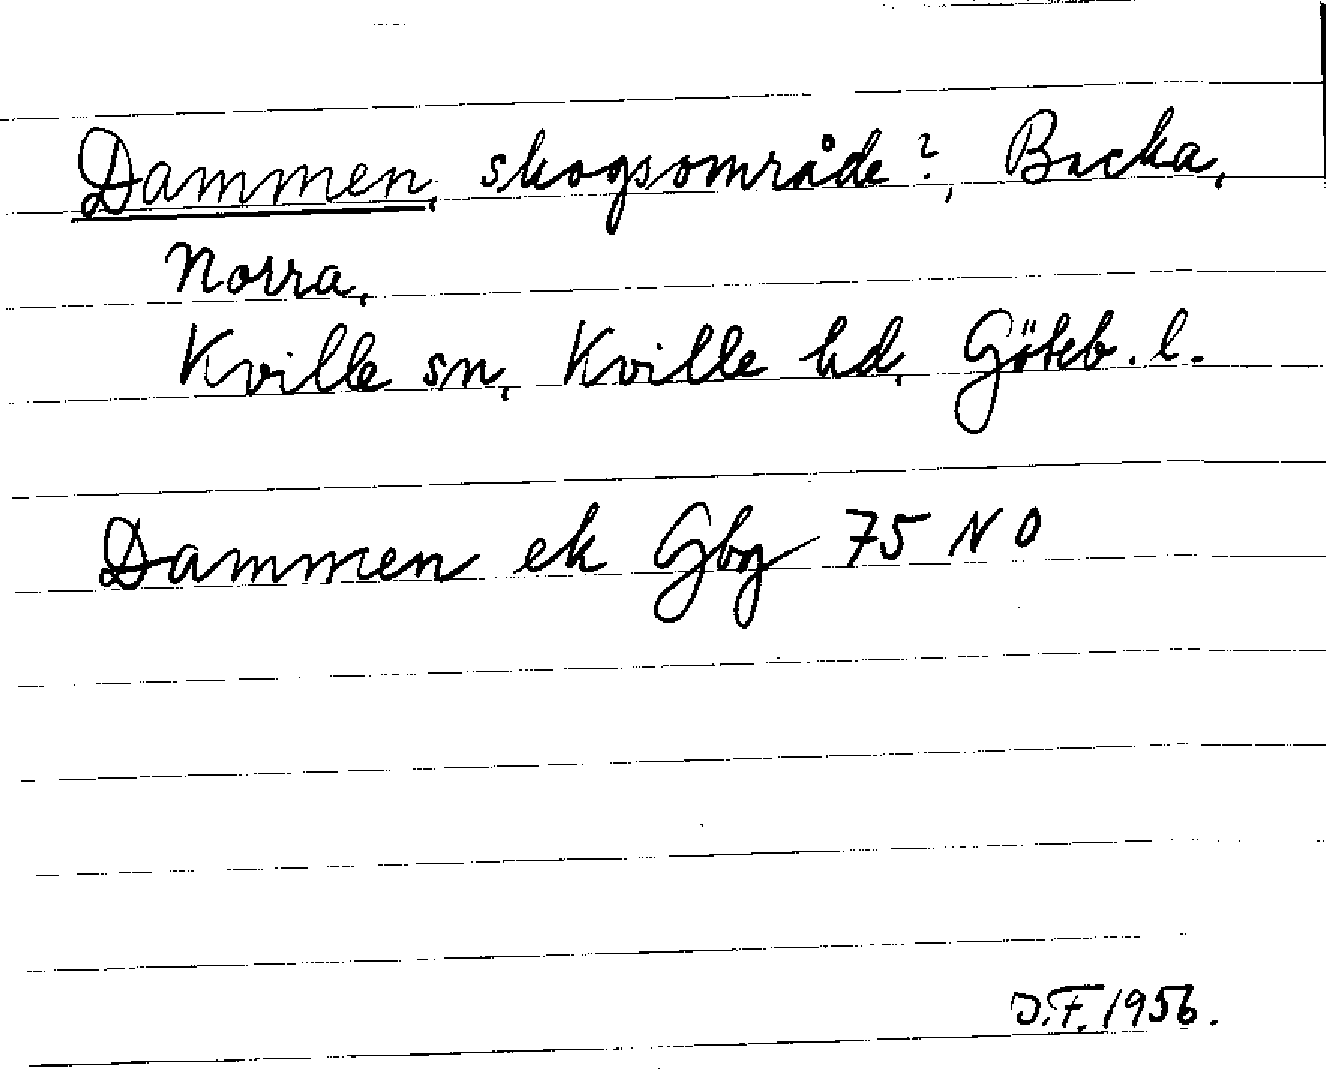 Dammen, skogsområde?, Backa,
Norra,
Kville sn, Kville hd, Göteb. l.
Dammen ek Gbg 75 NO
D.F. 1956.